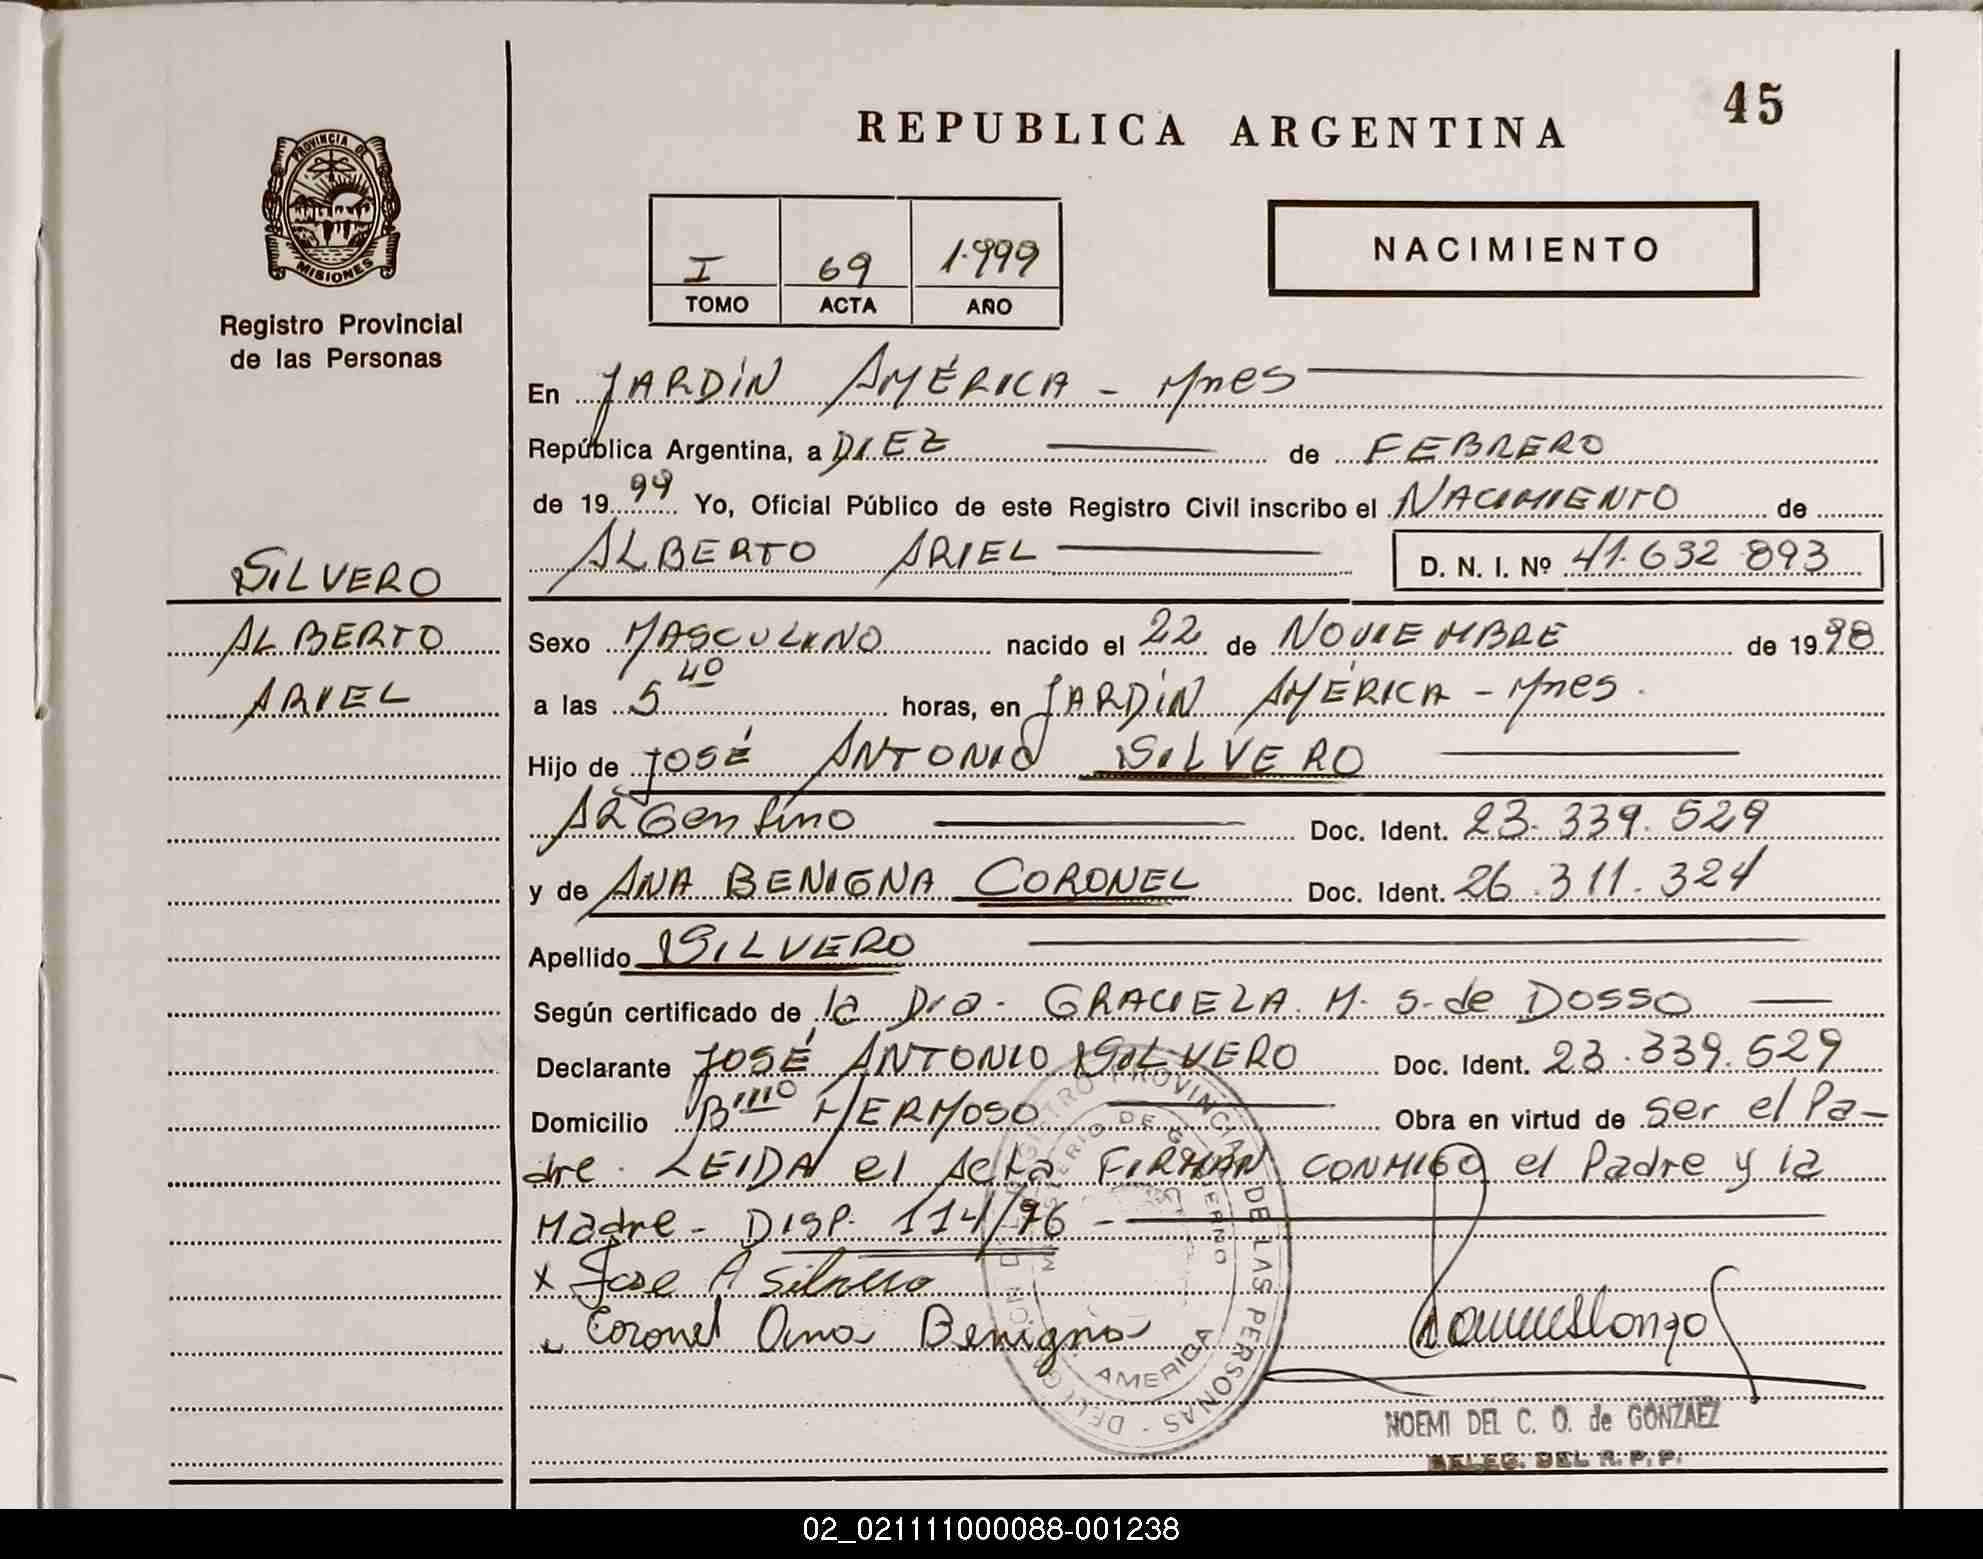 45
REPUBLICA ARGENTINA
PROVINCIA DE
MISIONES
Registro Provincial
de las Personas
I 69 1.999
TOMO ACTA AÑO
NACIMIENTO
En JARDÍN AMÉRICA - Mnes
República Argentina, a DIEZ de FEBRERO
de 1999 Yo, Oficial Público de este Registro Civil inscribo el NACIMIENTO de
ALBERTO ARIEL D. N. I. Nº 41.632 893
SILVERO
ALBERTO
ARIEL
Sexo MASCULINO nacido el 22 de NOVIEMBRE de 1998
a las 5 40 horas, en JARDÍN AMÉRICA - Mnes.
Hijo de JOSÉ ANTONIO SILVERO
ARGentino Doc. Ident. 23.339.529
y de ANA BENIGNA CORONEL Doc. Ident. 26.311.324
Apellido SILVERO
Según certificado de la Dra. GRACIELA M. S. de DOSSO
Declarante JOSÉ ANTONIO SILVERO Doc. Ident. 23.339.529
Domicilio Bº HERMOSO Obra en virtud de ser el Pa-
dre. LEIDA el Acta FIRMAN CONMIGO el Padre y la
Madre - DISP. 114/96 -
x Jose A Silvero
Coronel Ana Benigna
REGISTRO PROVINCIAL DE LAS PERSONAS
MINISTERIO DE GOBIERNO
AMERICA
NOEMI DEL C. O. de GONZAEZ
DELEG. DEL R. P. P.
02_021111000088-001238